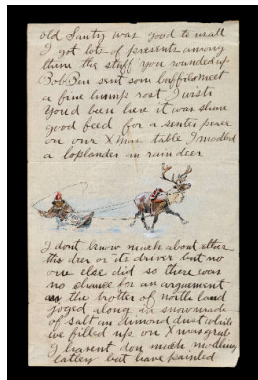 old Santy was good to us all
I got lots of presents among
them the stuff you rounded up
Bob Ben sent som buffilo meet
a fine hump rost I wish
you'd been here it was shure
good feed for a senti
on our X mas table I modled
a loplander an raindeer
I dont know much about ether
the deer or its driver but no
one else did so there was
no chance for an arguement
as the trotter of north land
joged along in snow made
of salt an dimond dust while
we filled up on X mas grub
I havent don much modling
latley but have painted